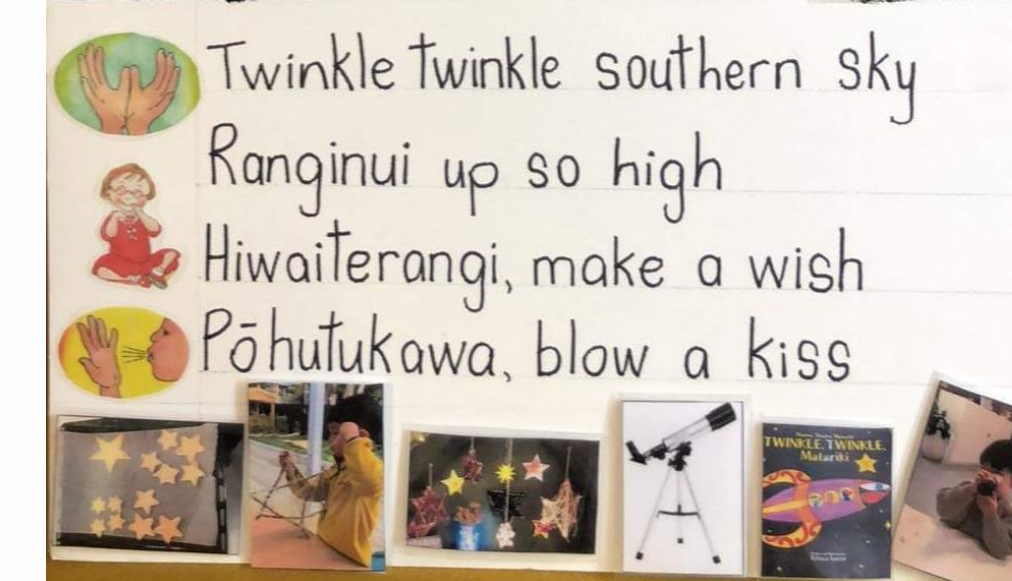 Twinkle twinkle southern sky
Ranginui up so high
Hiwaiterangi, make a wish
Pōhutukawa, blow a kiss
TWINKLE, TWINKLE,
Matariki